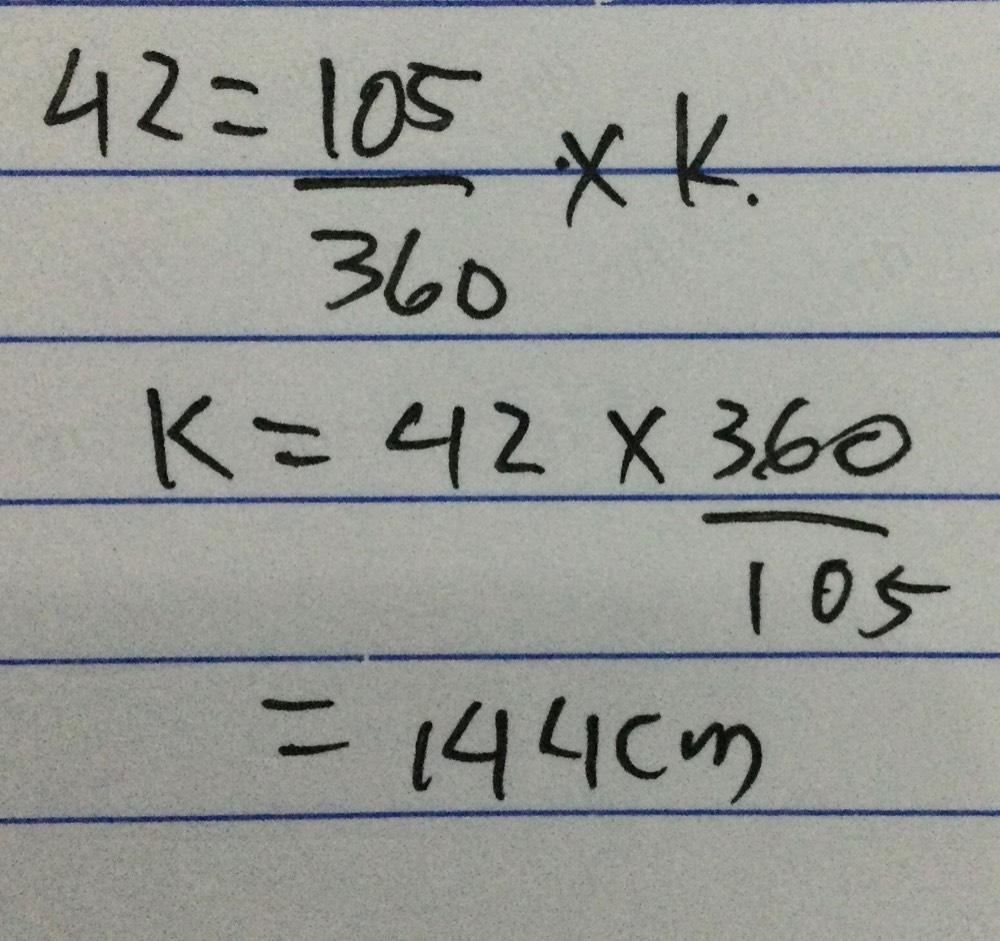 42 = 105/360 × K.
K = 42 × 360/105
= 144cm